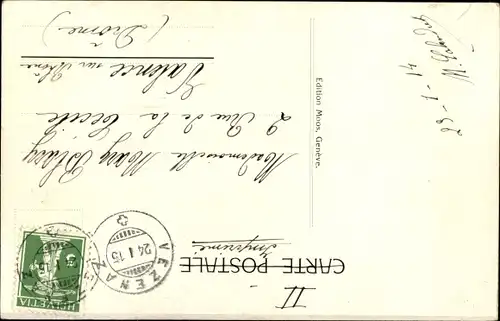 CARTE POSTALE
Imprimé
II
VEZENAZ
24.I.15
HELVETIA
Mademoiselle Mary
2 Rue de la Cécile
Valence sur Rhône
(Drôme)
Edition Moos, Genève.
23-1-14